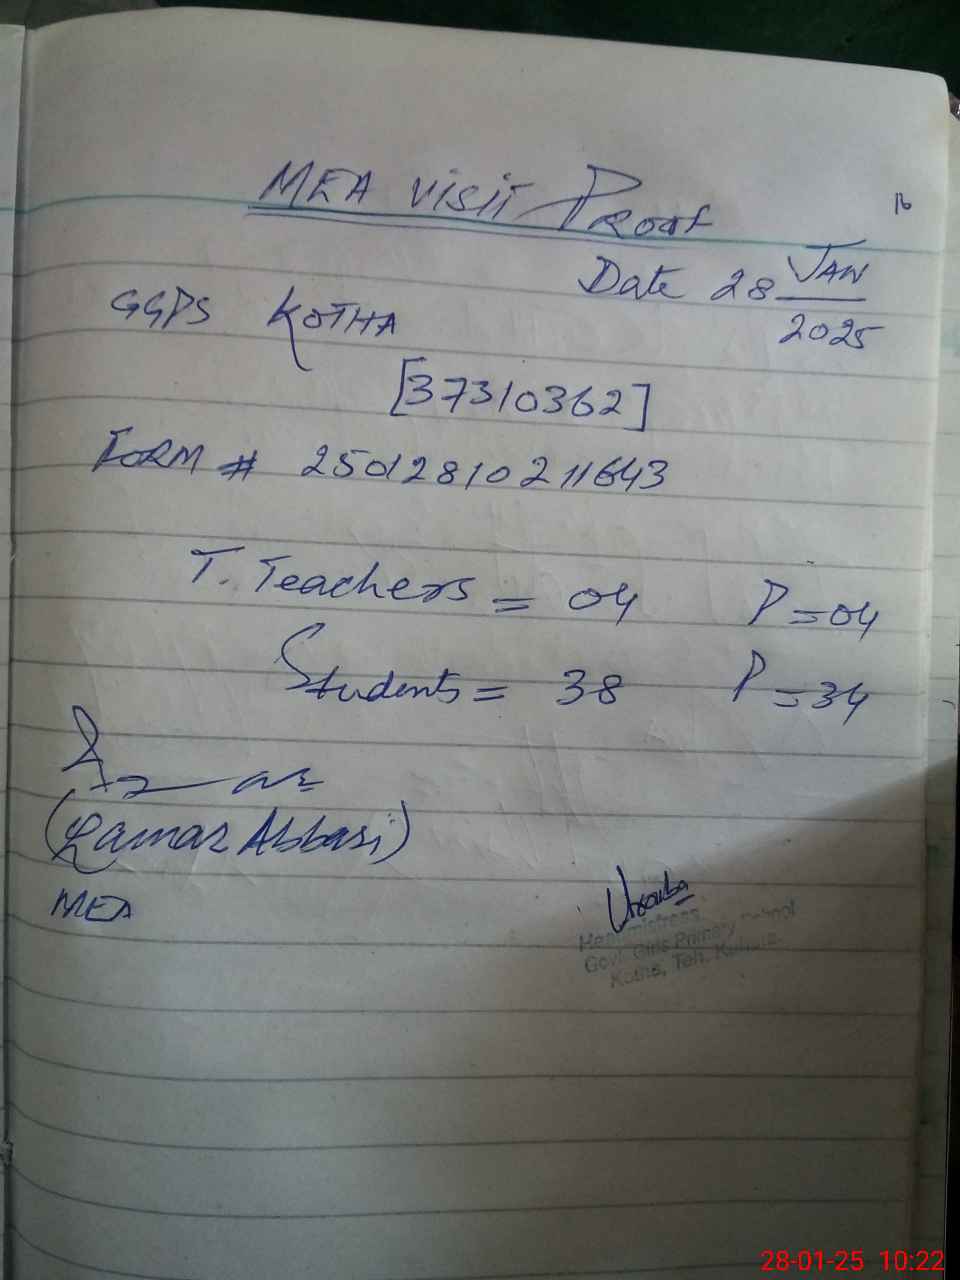 MEA Visit Proof
16
Date 28 JAN
2025
GGPS KOTHA
[37310362]
FORM # 25012810211643
T. Teachers = 04 P = 04
Students = 38 P = 34
(Qamar Abbasi)
MEA
Headmistress
Govt. Girls Primary School
Kotha, Teh.
28-01-25 10:22